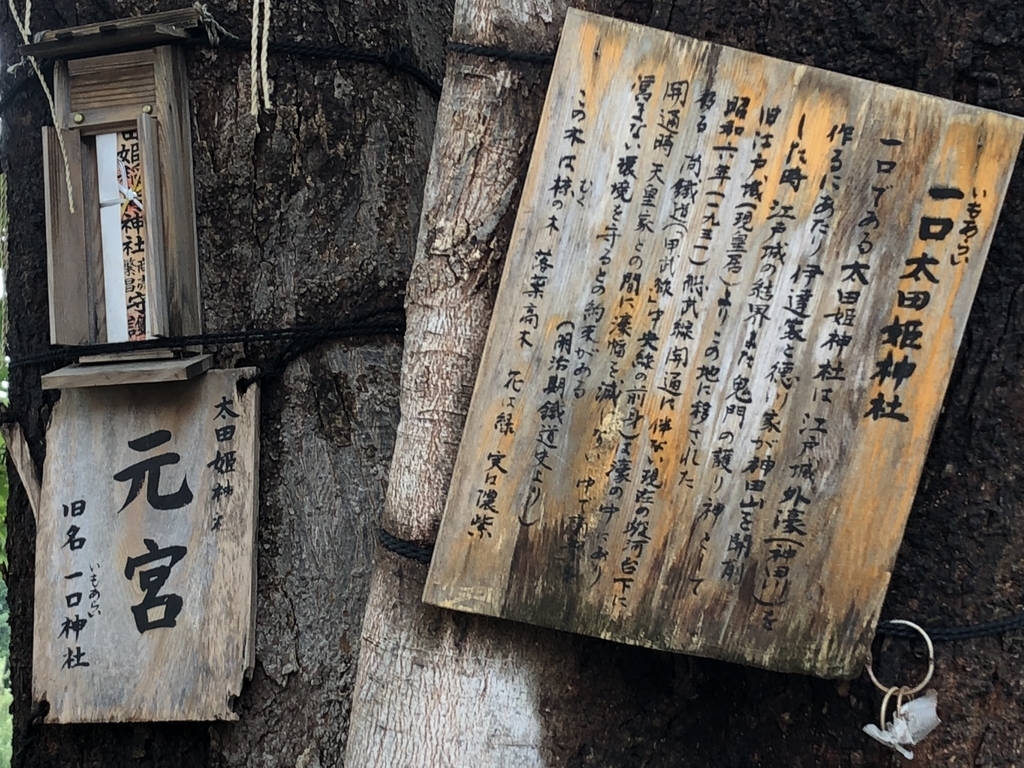 一口太田姫神社
いもあらい
一口である太田姫神社は 江戸城外濠(神田川)を
作るにあたり 伊達家と徳川家が神田山を開削
した時 江戸城の結界 鬼門の護り神として
旧江戸城(現皇居)よりこの地に移された
昭和六年(一九三一)総武線開通に伴ない現在の駿河台下に
移る 尚鉄道(甲武線」中央線の前身)は濠の中にあり
開通時 天皇家との間に濠幅を減
高まない環境を守るとの約束がある
(明治期鉄道史より)
この木は椋の木 落葉高木 花は緑 実は濃紫
むく
姫神社
商売繁昌守護
太田姫神社
元宮
旧名 一口神社
いもあらい